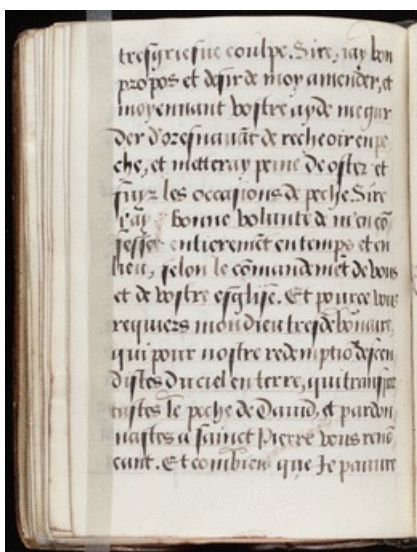 tresgriefue coulpe. Sire, iay bon
propos et desir de moy amender, et
moyennant vostre ayde me gar
der d'oresnauãt de recheoir en pe
che, et metteray peine de oster et
fuyr les occasions de peche Sire
i'ay bonne volunte de m'en cõ
fesser entierement en temps et en
lieu, selon le cõmandemẽt de vous
et de vostre esglise. Et pource vous
requiers mon dieu tresdebonaire,
qui pour nostre redemptiõ descen
distes du ciel en terre, qui
tastes le peche de Dauid, et pardon
nastes a sainct Pierre vous renõ
cant. Et combien que Je pauure